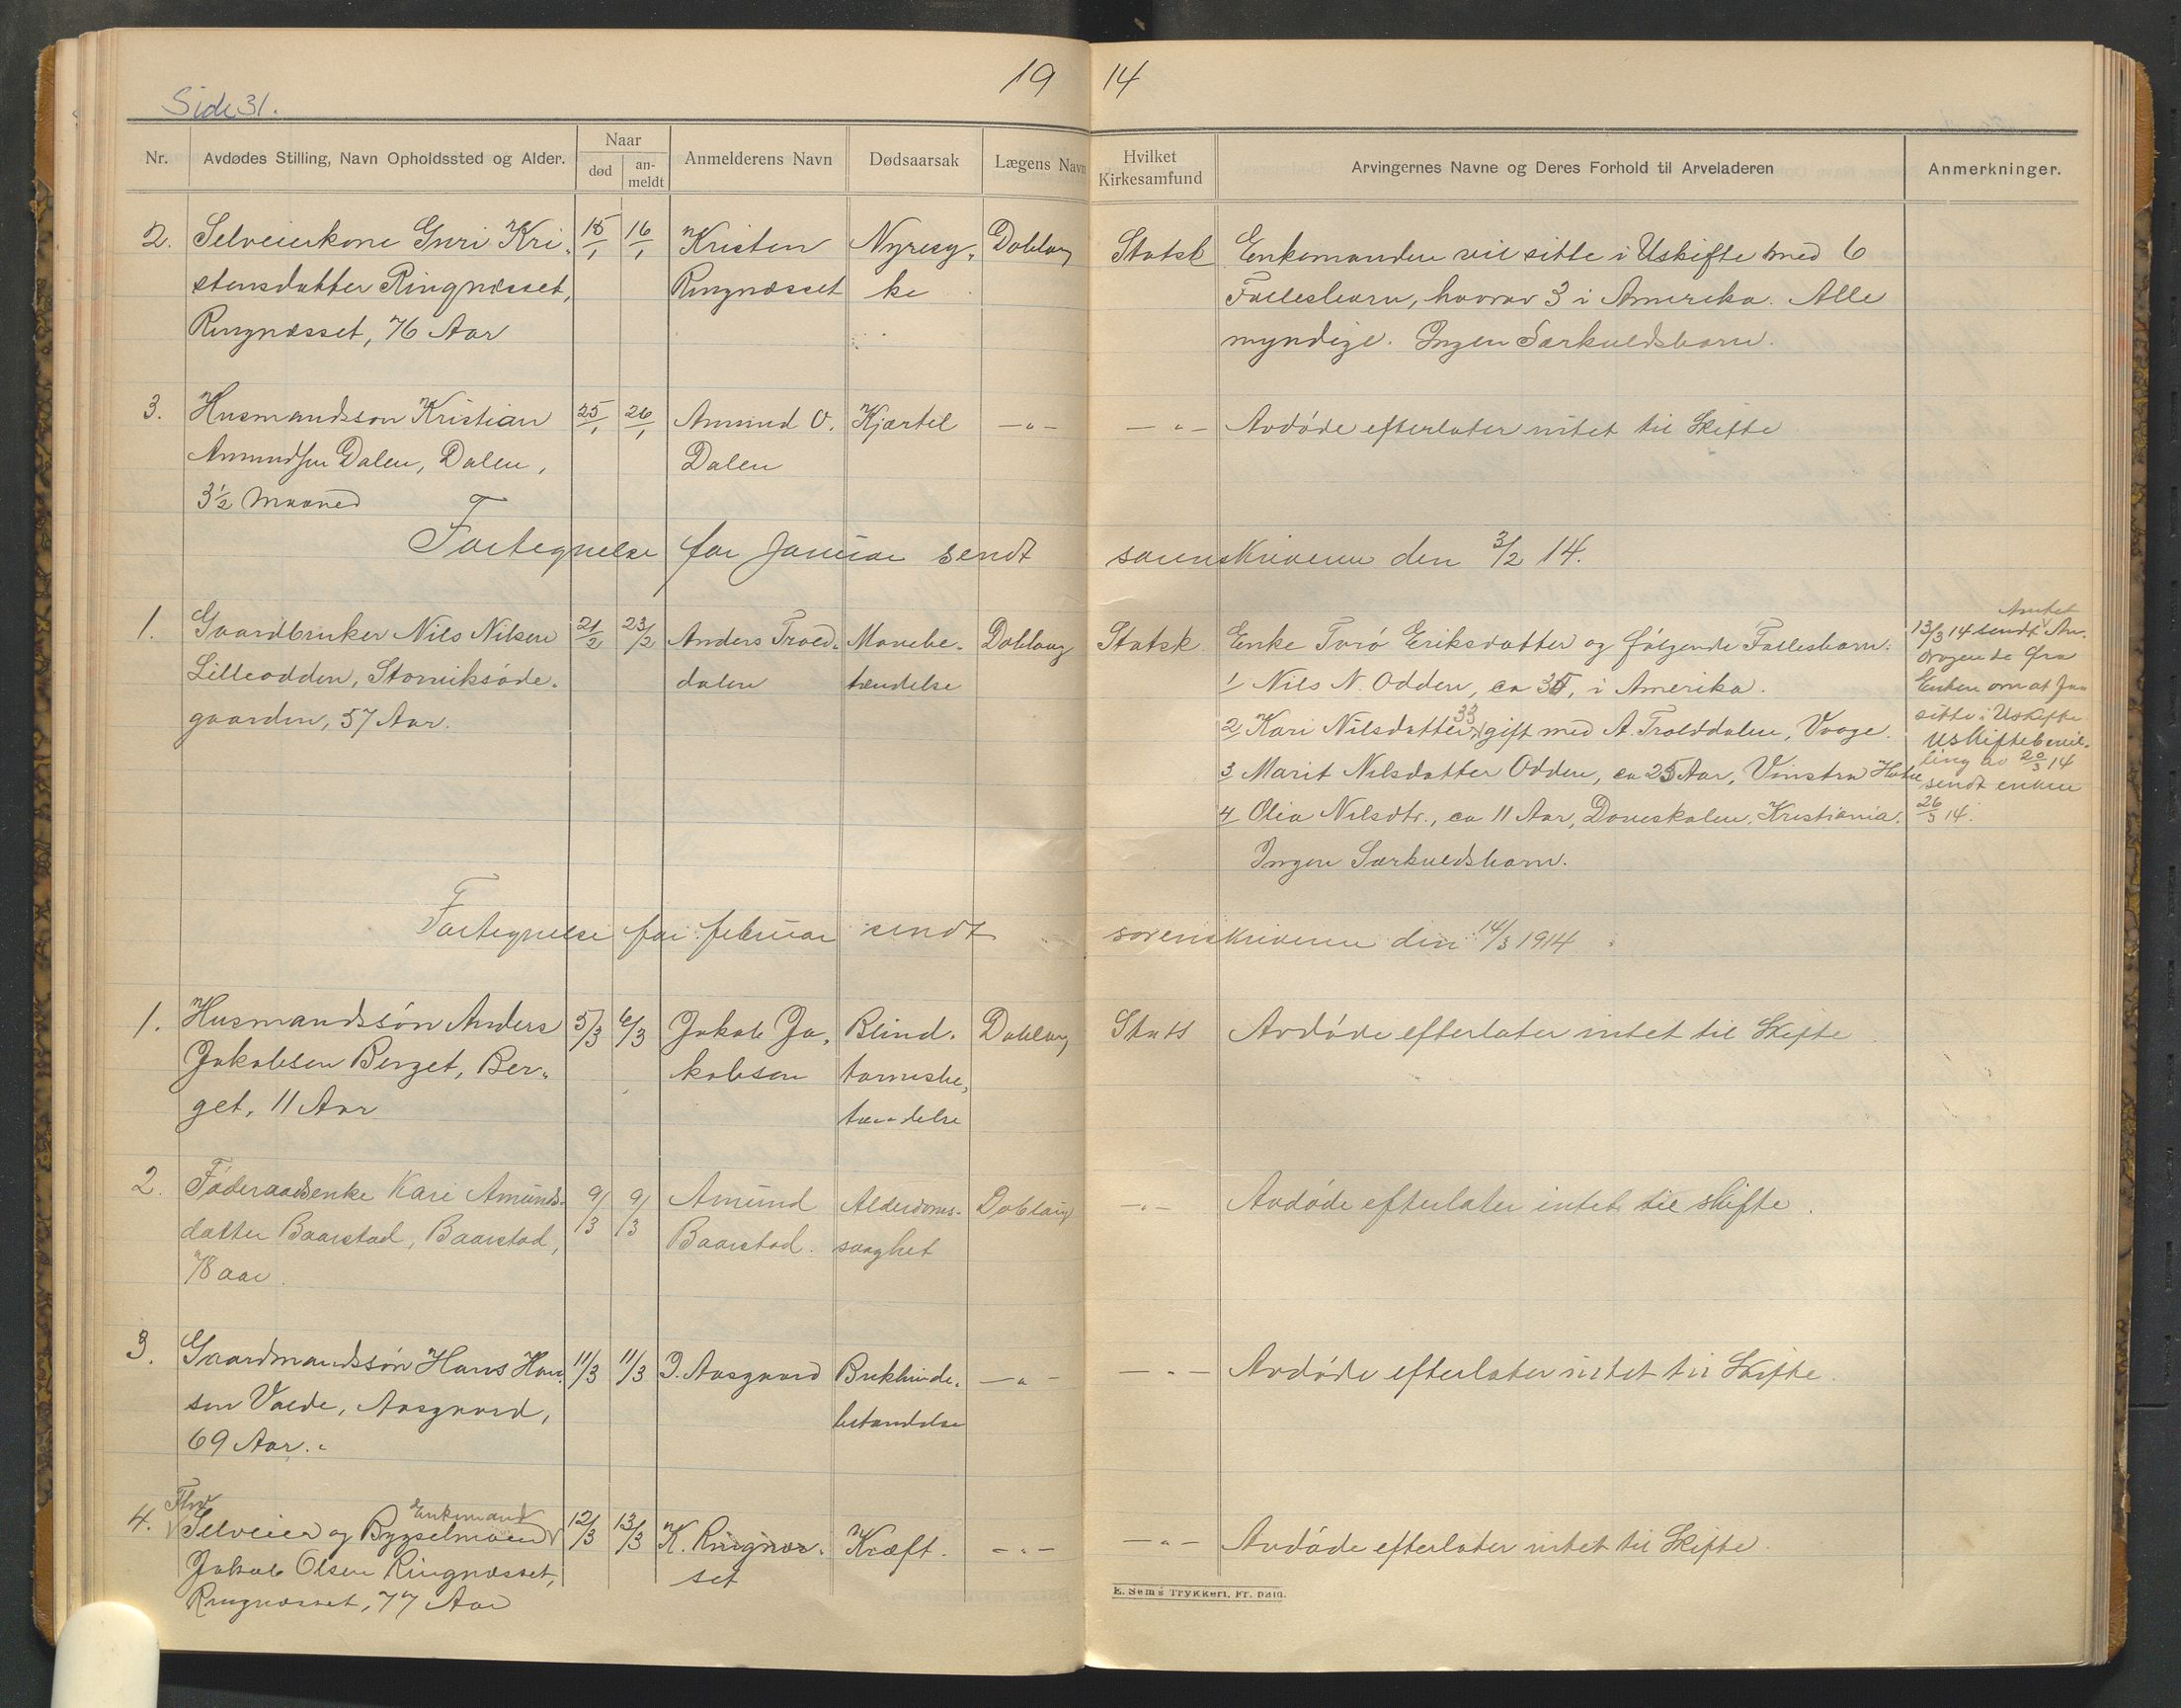 Side 31.
19 14
Nr.
Avdødes Stilling, Navn Opholdssted og Alder.
Naar
død
an-
meldt
Anmelderens Navn
Dødsaarsak
Lægens Navn
Hvilket
Kirkesamfund
Arvingernes Navne og Deres Forhold til Arveladeren
Anmerkninger.
2. Selveierkone Guri Kri- 15/1 16/1 Kristen Nyresy- Doblaug Statsk Enkemanden vil sitte i Uskifte med 6
stensdatter Ringnæsset, Ringnæsset ke Fællesbarn, hvorav 3 i Amerika. Alle
Ringnæsset, 76 Aar myndige. Ingen Særkuldsbarn.
3. Husmandssøn Kristian 25/1 26/1 Amund O. Kjertel —„— —„— Avdøde efterlater intet til Skifte
Amundsen Dalen, Dalen, Dalen
3½ Maaned
Fortegnelse for Januar sendt sorenskriveren den 3/2 14.
1. Gaardbruker Nils Nilsen 21/2 23/2 Anders Trold- Mavebe- Doblaug Statsk. Enke Torø Eriksdatter og følgende Fællesbarn:
Lilleodden, Storviksøde- dalen tændelse 1/ Nils N. Odden, ca 35, i Amerika.
gaarden, 57 Aar. 2/ Kari Nilsdatter 33 gift med A. Trolddalen, Vaage.
3/ Marit Nilsdatter Odden, ca 25 Aar, Vinstra Hotel
4/ Olia Nilsdtr., ca 11 Aar, Døveskolen, Kristiania.
Ingen Særkuldsbarn.
Amtet
13/3 14 sendt An-
dragende fra
Enken om at faa
sitte i Uskifte.
Uskiftebevil-
ling av 20/3 14
sendt enken
26/3 14.
Fortegnelse for februar sendt sorenskriveren den 14/3 1914
1. Husmandssøn Anders 5/3 6/3 Jakob Ja- Blind- Doblaug Stats Avdøde efterlater intet til Skifte
Jakobsen Berget, Ber- kobsen tarmsbe-
get, 11 Aar tændelse
2. Føderaadsenke Kari Amunds- 9/3 9/3 Amund Alderdoms- Doblaug —„— Avdøde efterlater intet til skifte.
datter Baarstad, Baarstad, Baarstad. svaghet
78 aar.
3. Gaardmandssøn Hans Han- 11/3 11/3 P. Aasgaard Brekhinde- —„— —„— Avdøde efterlater intet til Skifte.
sen Valde, Aasgaard, betændelse
69 Aar.
4. Fhv Selveier og Bygselmand Enkemand 12/3 13/3 K. Ringnæs- Kræft. —„— —„— Avdøde efterlater intet til Skifte.
Jakob Olsen Ringnæsset, set
Ringnæsset, 77 Aar
E. Sems Trykkeri, Fr. hald.